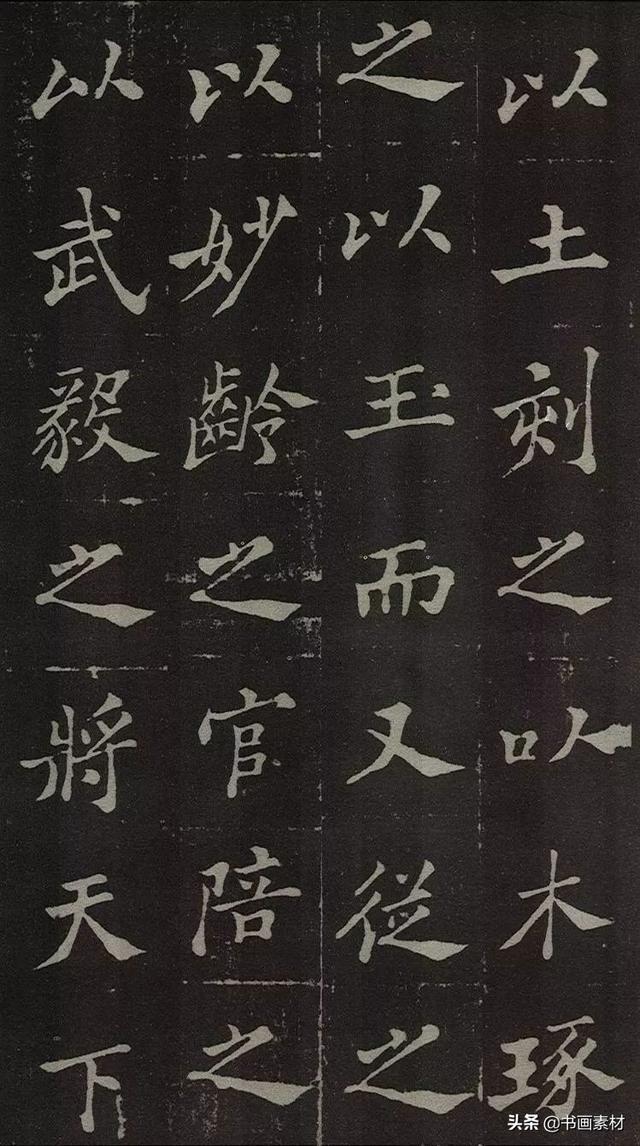 以土刻之以木琢
之以玉而又從之
以妙齡之官陪之
以武毅之將天下
头条 @书画素材